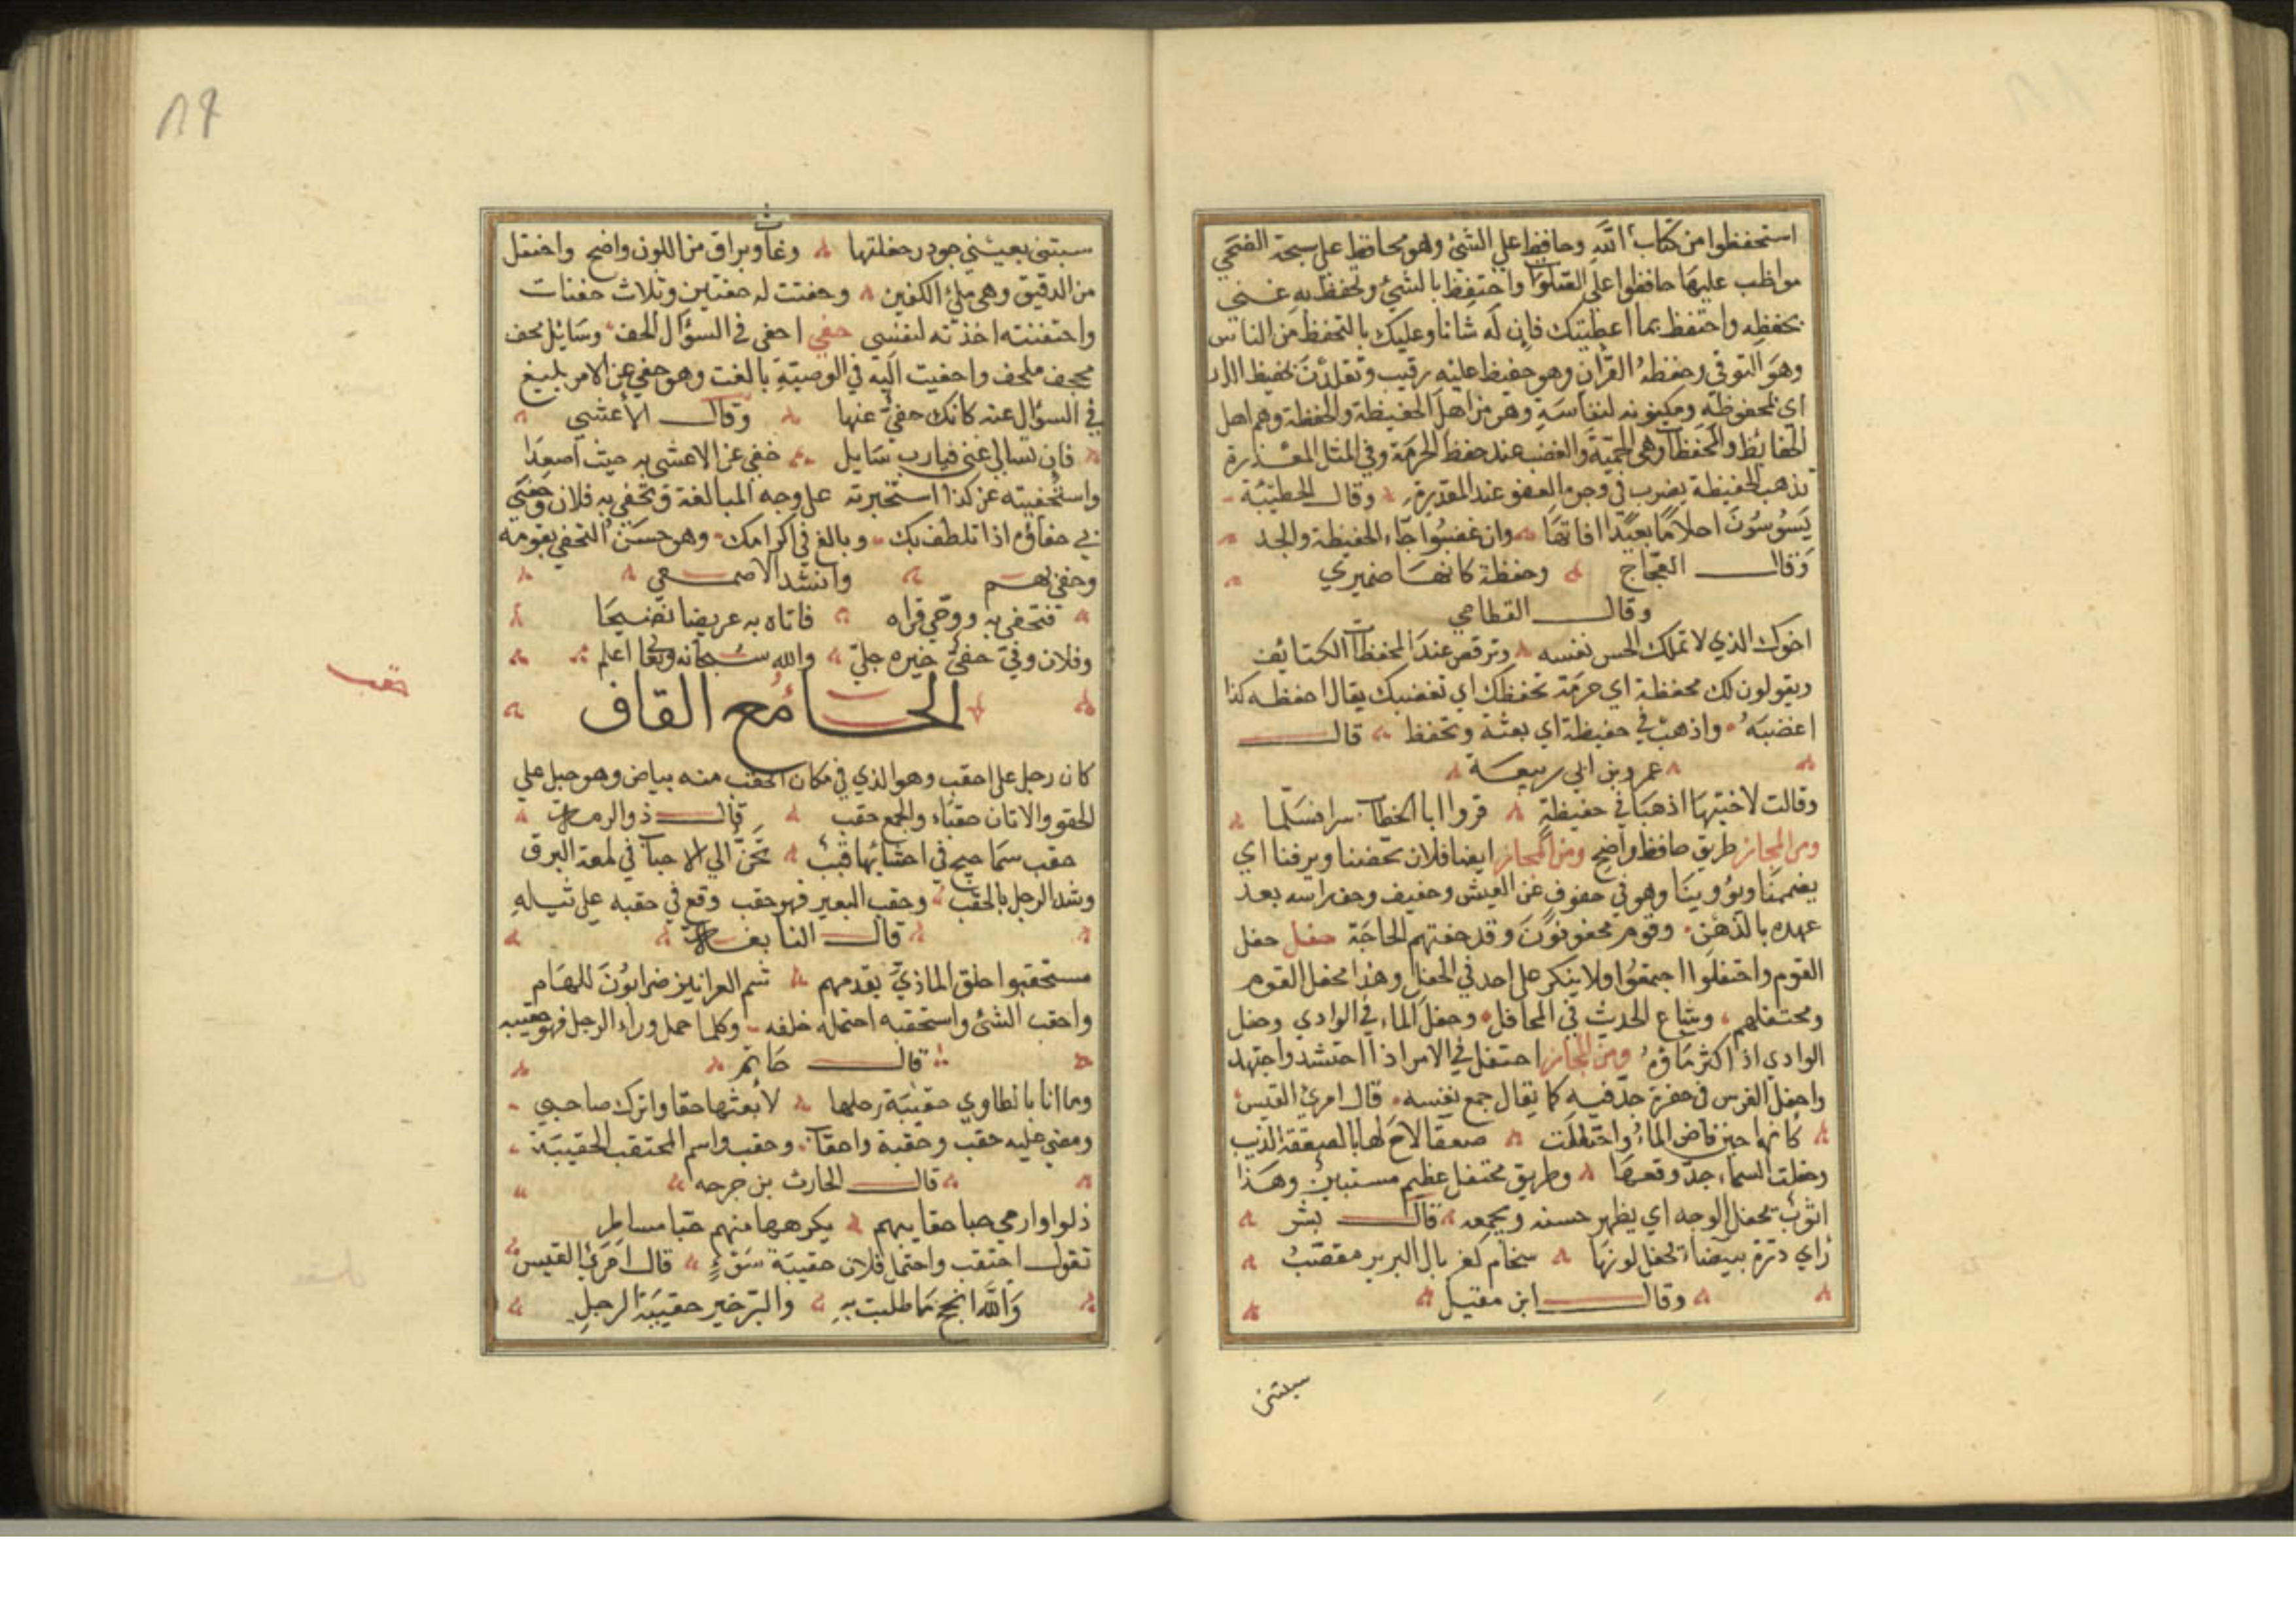 استحفظوا من كتاب الله وحافظ على الشئ وهو محافظ على سبحة الضحى
مواظب عليها حافظوا على الصلوات واحتفظ بالشئ وتحفظ به عنى
بحفظه واحتفظ بما اعطيتك فان له شانا وعليك بالتحفظ من الناس
وهو التوقي وحفظه القرآن وهو حفيظ عليه رقيب وتقلدن بحفيظ الدر
اي بمحفوظه ومكنونه لنفاسته وهو من اهل الحفيظة والحفظة وهم اهل
الحفائظ والمحفظات وهى الحمية والغضب عند حفظ الحرمة وفي المثل المقدرة
تذهب الحفيظة يضرب في وجوب العفو عند المقدرة وقال الحطيئة
يسوسون احلاما بعيدا اناتها وان غضبوا جاء الحفيظة والجد
وقال العجاج وحفظة كانها ضميري
وقال القطامي
اخوك الذي لا تملك الحس نفسه وترفض عند المحفظات الكتائف
ويقولون لك محفظة اي حرمة تحفظك اي تغضبك يقال احفظه كذا
اغضبه واذهب في حفيظة اي بعثه وتحفظ قال
عمرو بن ابي ربيعة
وقالت لاختيها اذهبا في حفيظة فزورا ابا الخطاب سرا فسلما
ومن المجاز طريق حافظ واضح ومن المجاز ايضا فلان يحفنا ويرفنا اي
يضمنا ويؤوينا وهو في حفوف من العيش وحفيف وحف راسه بعد
عهده بالدهن وقوم محفوفون وقد حفتهم الحاجة حفل حفل
القوم واحتفلوا اجتمعوا ولا ينكر على احد في الحفل وهذا محفل القوم
ومحتفلهم وشاع الحديث في المحافل وحفل الماء في الوادي وحفل
الوادي اذ اكثر ماؤه ومن المجاز احتفل في الامر اذا احتشد واجتهد
واحفل الفرس في حضره جد فيه كما يقال جمع نفسه قال امرئ القيس
كانها حين فاض الماء واحتفلت صعقا لاح لها بالصعقة الذيب
وحفلت السماء جد وقعها وطريق محتفل عظيم مستبين وهذا
الثوب يحفل الوجه اي يظهر حسنه ويجمعه قال بشر
راي درة بيضاء يحفل لونها سخام كغربال البرير مقصب
وقال ابن مقبل
سبتنى
١٨٩
سبتنى بعيني جودر حفلتها رعاث وبراق من اللون واضح واحتفل
من الدقيق وهى ملئ الكفين وحفنت له حفنتين وثلاث حفنات
واحتفنته اخذته لنفسى حفي احفى في السؤال الحف وسائل محف
مجحف ملحف واحفيت اليه في الوصية بالغت وهو حفي عن الامر بليغ
في السؤال عنه كانك حفي عنها وقال الأعشى
فان تسالي عني فيارب سايل حفي عن الاعشى به حيث اصعدا
واستحفيته عن كذا استخبرته على وجه المبالغة وتحفى به فلان وحفى
بي حفاوة اذا تلطف بك وبالغ في اكرامك وهو حسن التحفي بقومه
وحفي بهم وانشد الاصمعي
فتحفى به ووحي قراه فاتاه به عريضا نضيجا
وفلان وفي حفي خيره جلي والله سبحانه وتعالى اعلم
الحاء مع القاف
حقب
كان رجل على احقب وهو الذي في مكان الحقب منه بياض وهو حبل على
الحقو والاتان حقباء والجمع حقب قال ذو الرمة
حقب سماحيج في احشائها قبب تحن الي الاحباب في لمعة البرق
وشد الرحل بالحقب وحقب البعير فهو حقب وقع في حقبه على ثيله
قال النابغة
مستحقبوا حلق الماذي يقدمهم شم العرانين ضرابون للهام
واحقب الشئ واستحقبه احتمله خلفه وكلما حمل وراء الرحل فهو حقيبه
قال حاتم
وما انا بالطاوي حقيبة رحلها لأبعثها حقا واترك صاحبي
ومضى عليه حقب وحقبة واحقاب وحقب واسم المحتقب الحقيبة
قال الحارث بن حرجه
ذلوا وارمي حقايبهم يكرهها منهم
تقول احتقب واحتمل فلان حقيبة سوء قال امرئ القيس
والله انجح ما طلبت به والبر خير حقيبة الرحل